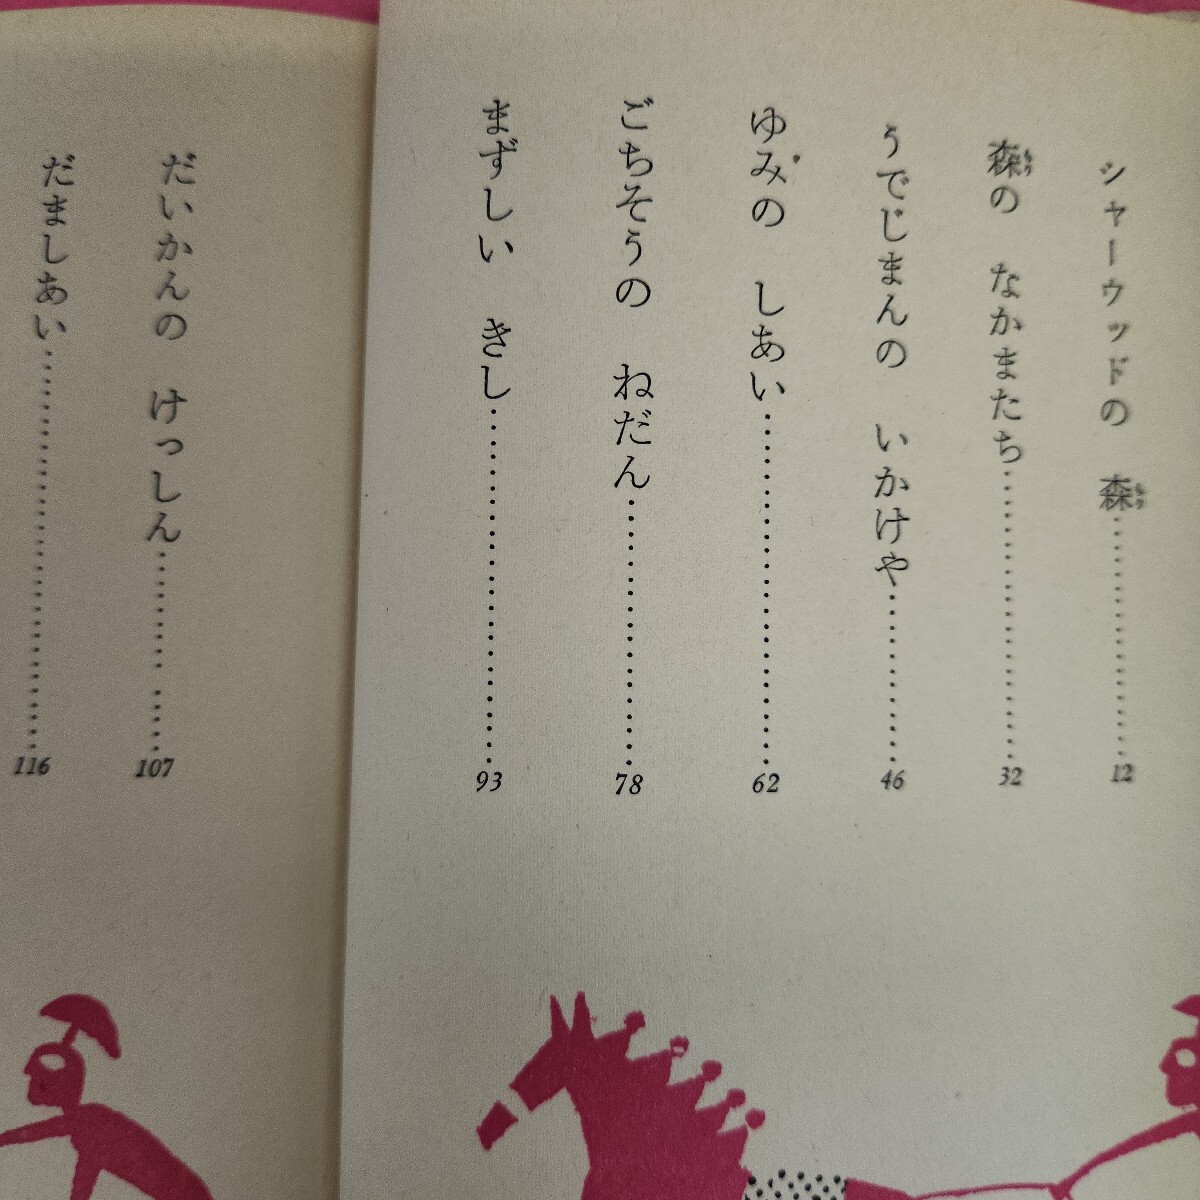 シャーウッドの 森もり……………………12
森もりの なかまたち……………………32
うでじまんの いかけや……………………46
ゆみの しあい……………………62
ごちそうの ねだん……………………78
まずしい きし……………………93
だいかんの けっしん……………………107
だましあい……………………116